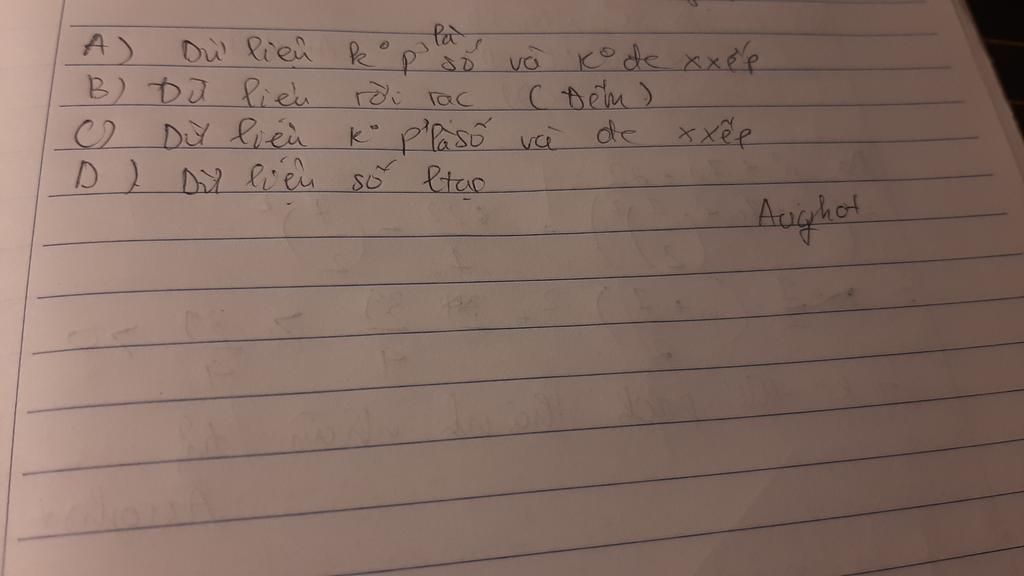 A) Dữ liệu k° p' là số và k° de xxếp
B) Dữ liệu rời rạc (Đếm)
C) Dữ liệu k° p' là số và de xxếp
D) Dữ liệu số ltạo